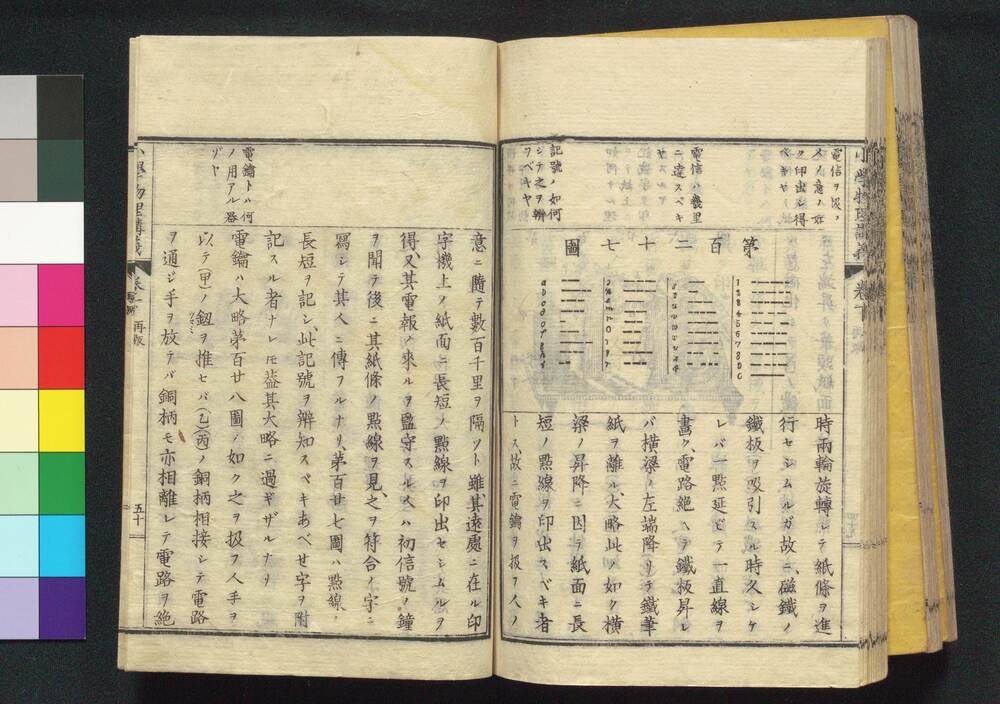 電信ヲ扱フ
人ノ意ノ如
ク印出シ得
ベキヤ
電信ハ幾里
ニ達スベキ
ヤ
記號ノ如何
シテ之ヲ辨
フベキヤ
第百二十七圖
時兩輪旋轉シテ紙條ヲ進
行セシムルガ故ニ、磁鐵ノ
鐵板ヲ吸引スル時久シケ
レバ一點延ビテ一直線ヲ
畵ク、電路絶ヘテ鐵板昇レ
バ横梁ノ左端降リテ鐵筆
紙ヲ離ル、大略此ノ如ク横
梁ノ昇降ニ因テ紙面ニ長
短ノ點線ヲ印出スベキ者
トス、故ニ電鑰ヲ扱フ人ノ
電鑰トハ何
ノ用アル器
ゾヤ
意ニ隨テ數百千里ヲ隔ツト雖、其遠處ニ在ル印
字機上ノ紙面ニ長短ノ點線ヲ印出セシムルヲ
得、又其電報ノ來ルヲ監守スル人ハ初信號ノ鐘
ヲ聞テ後ニ其紙條ノ點線ヲ見、之ヲ符合ノ字ニ
寫シテ其人ニ傳フルナリ、第百廿七圖ハ點線ノ
長短ヲ記シ、此記號ヲ辨知スベキあべせ字ヲ附
記スル者ナレ𪜈葢其大略ニ過ギザルナリ
電鑰ハ大略第百廿八圖ノ如ク之ヲ扱フ人手ヲ
以テ(甲)ノ鈕ヲ推セバ(乙)(丙)ノ銅柄相接シテ電路
ヲ通ジ手ヲ放テバ銅柄モ亦相離レテ電路ヲ絶
再版
五十